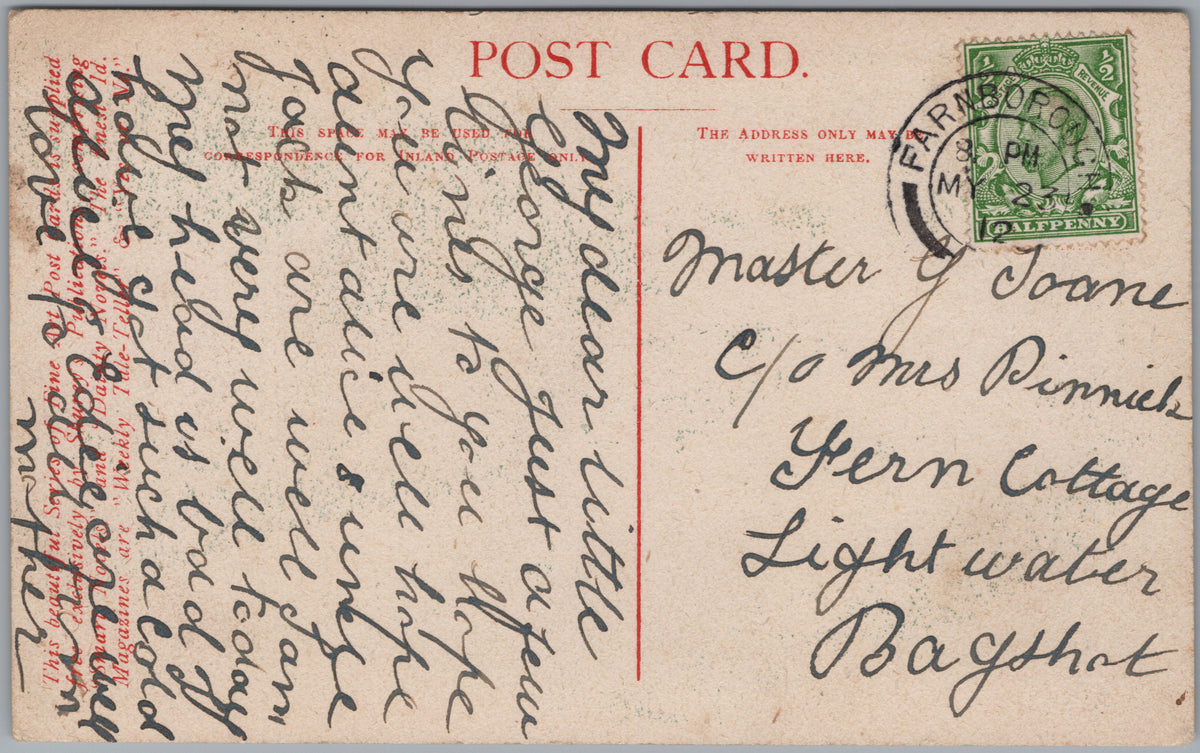 POST CARD.
THIS SPACE MAY BE USED FOR
CORRESPONDENCE FOR INLAND POSTAGE ONLY.
THE ADDRESS ONLY MAY BE
WRITTEN HERE.
1/2
REVENUE
HALFPENNY
FARNBOROUGH
8. PM
MY 23
12
Master G Soane
c/o Mrs Pinnick
Fern Cottage
Light water
Bagshot
My dear little
George Just a few
lines to you Hope
you are well hope
aunt alice & unkle
Jack are well I am
not very well today
My head is bad I
have got such a cold
to are well
love to all from
mother
This beautiful Series of Fine Art Post Cards is supplied
free exclusively by Shurey's Publications, comprising
"Smart Novels," and "Dainty Novels." The Finest 1d.
Magazines are "Weekly Tale-Teller" & "Yes or No."